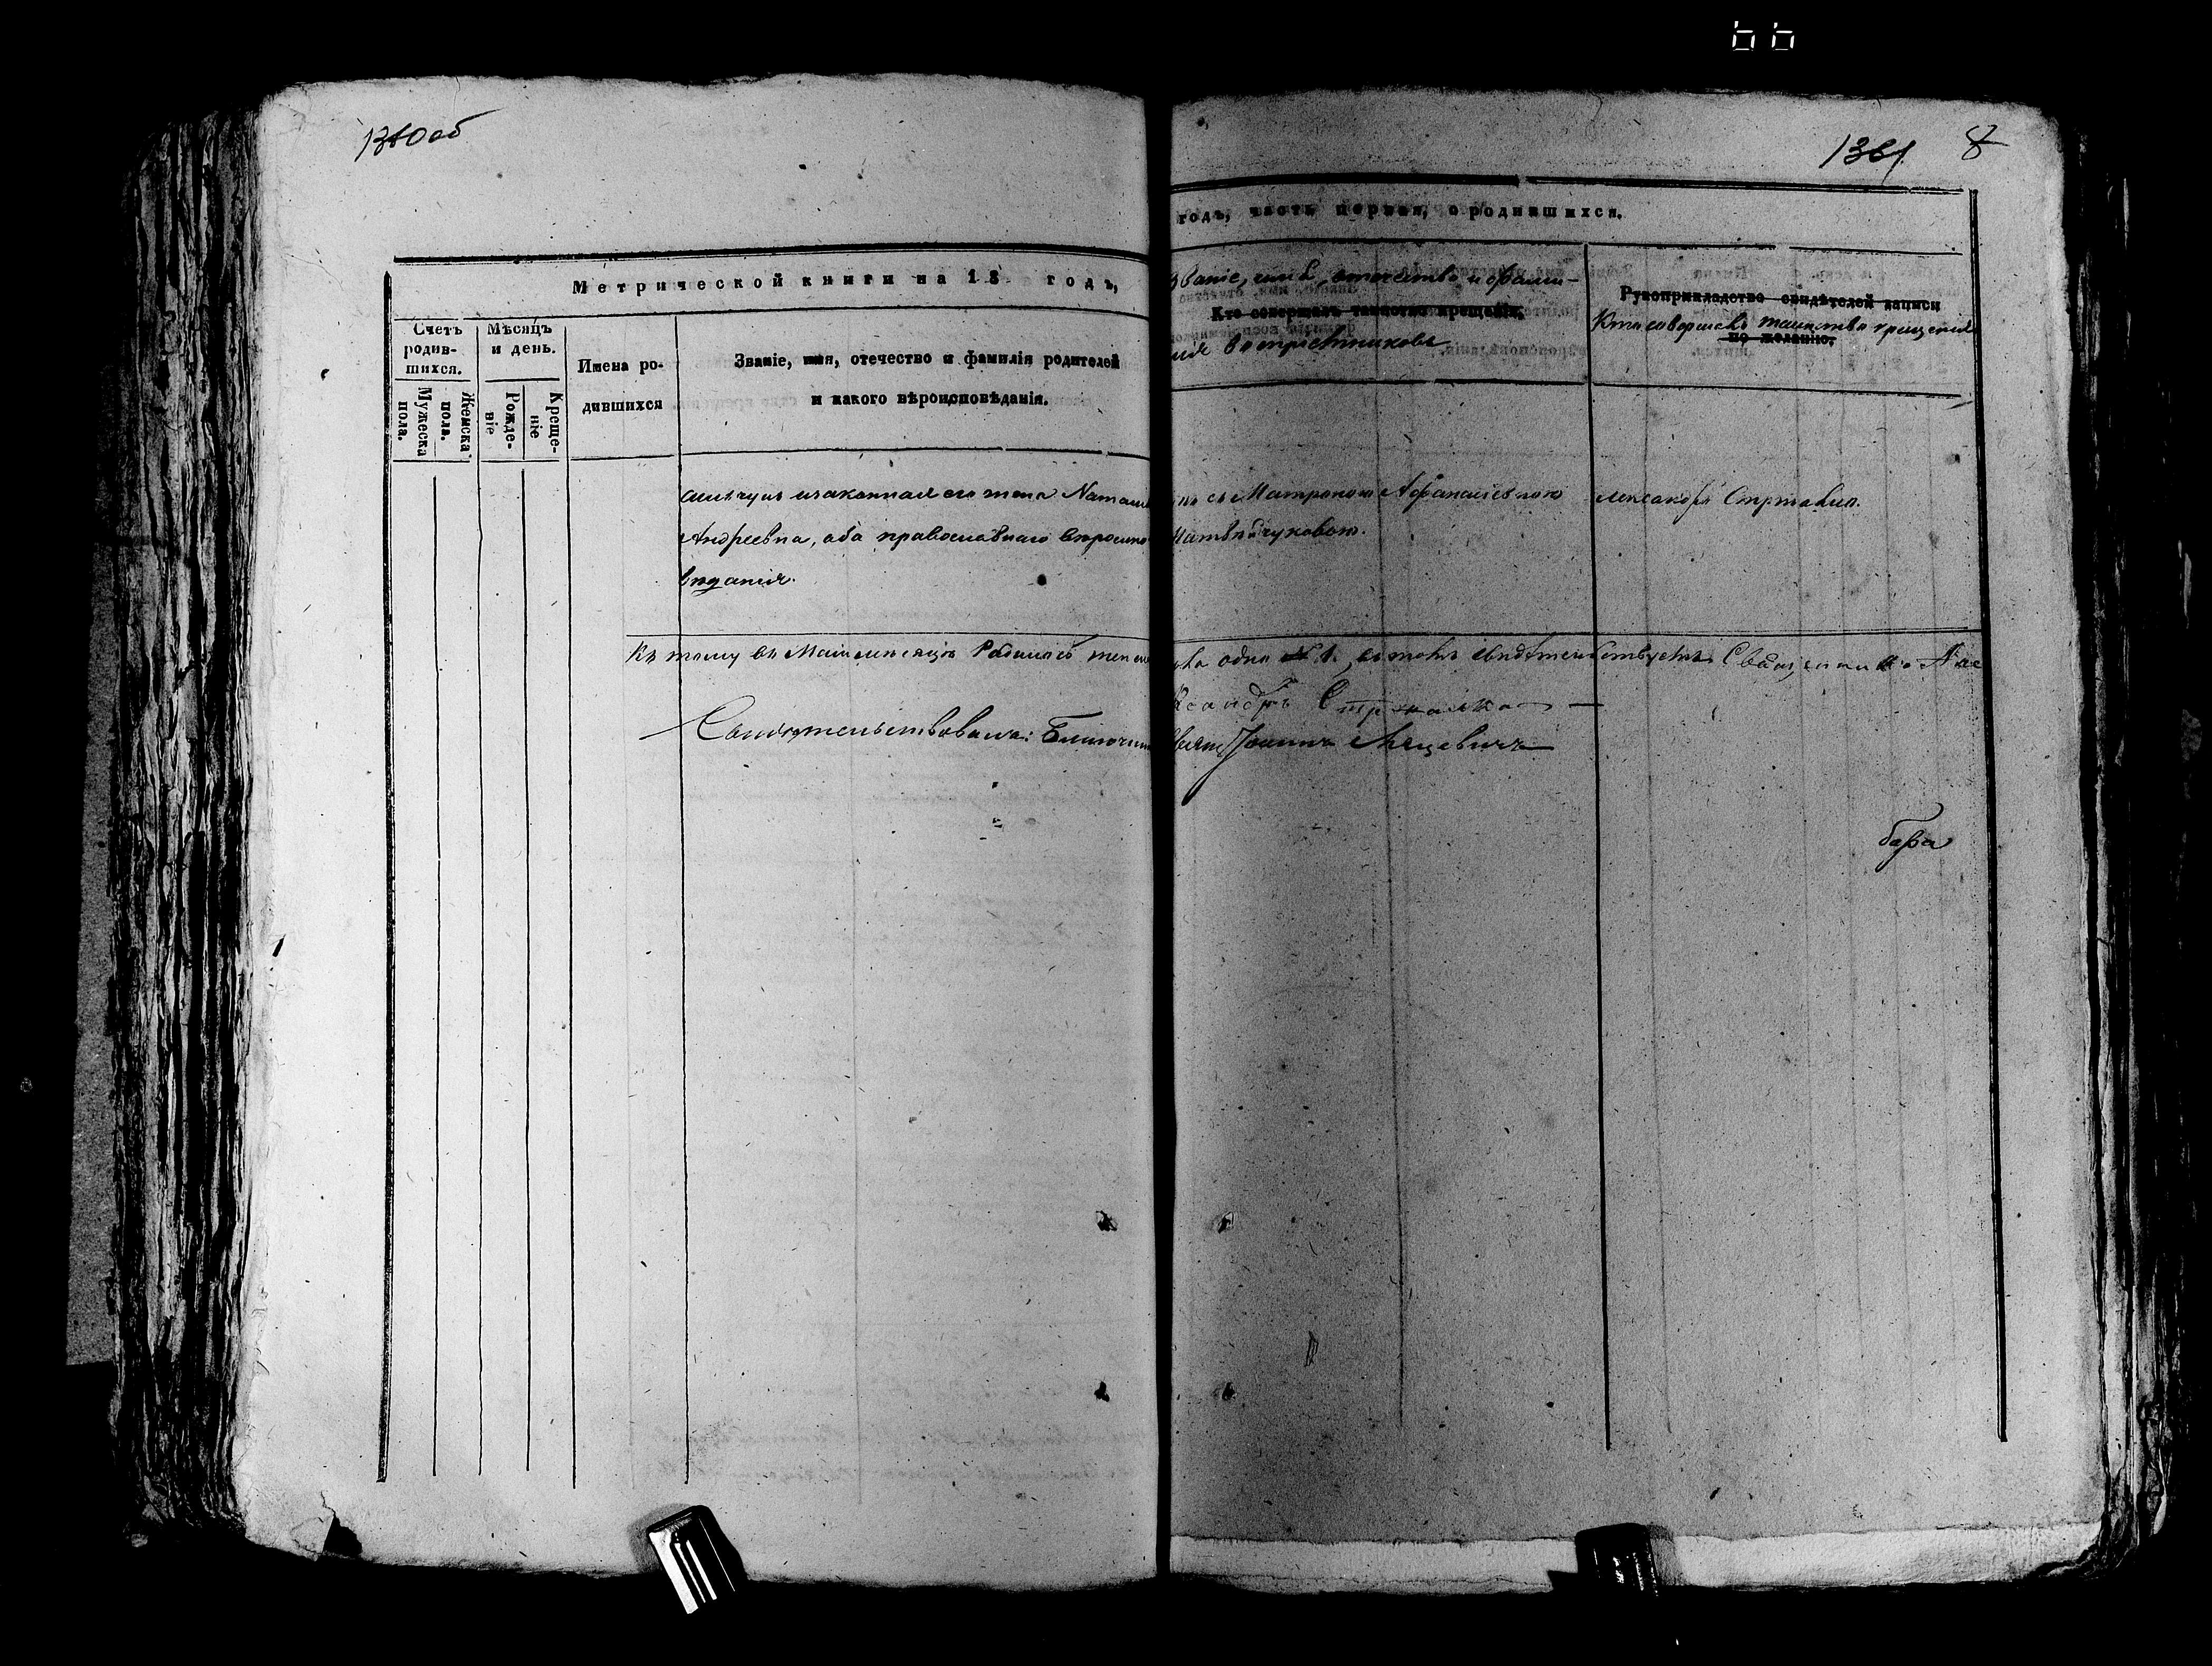 66
1360об
1361 8
Метрической книги на 18 годъ,
годъ, часть первая, о родившихся.
Счетъ родив-шихся.
Мужеска пола.
Женска пола.
Мѣсяцъ и день.
Рожде-ніе
Креще-ніе
Имена ро-
дившихся
Званіе, имя, отечество и фамилія родителей
и какого вѣроисповѣданія.
Званіе, имя, отечество и фами-
Кто совершалъ таинство крещенія.
лія воспріемниковъ
Рукоприкладство свидѣтелей записи
Кто совершалъ таинство крещенія
по желанію.
изаконная его жена Натал
Андреевна, оба православнаго вѣроиспо
вѣданія.
съ Матроною Афанасіевною
Матвѣйчуковою.
лександръ Стржалка.
Къ тому въ Маѣ мѣсяцѣ Родилось женс
ска одна № 1. въ томъ свидѣтельствуетъ Священникъ Але
ксандръ Стржалка
Свидѣтельствовалъ: Благочин
Свящ Іоаннъ Мацевичъ